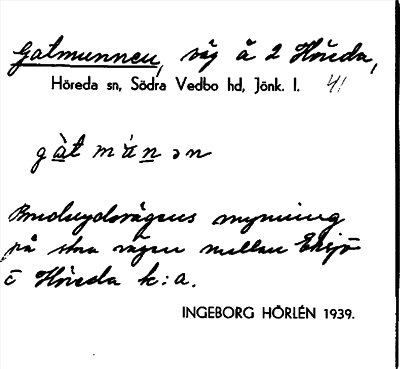 Gatmunnen, väg å 2 Höreda,
Höreda sn, Södra Vedbo hd, Jönk. l. 41
gàt mún ən
mynning
på stora vägen mellan Eksjö
o Höreda k:a.
INGEBORG HÖRLÉN 1939.